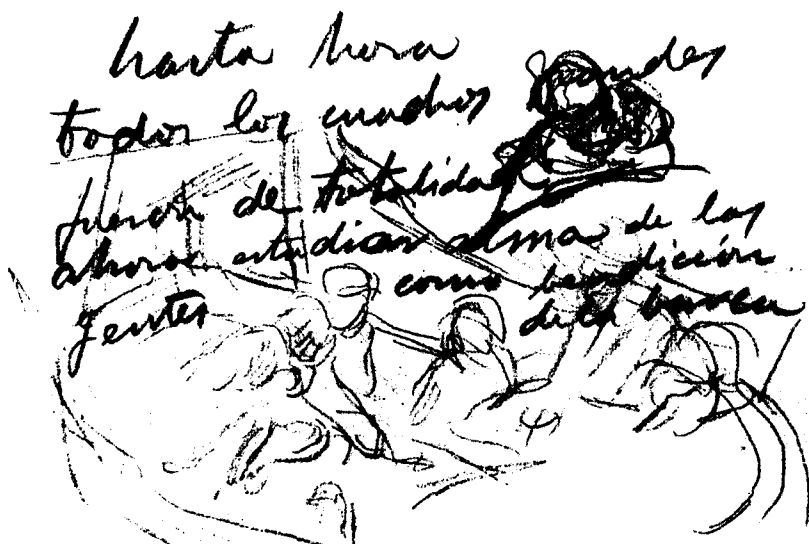 hasta hora
todos los cuadros grandes
fueron de totalidad
ahora estudiar alma de las
gentes como bendición
de la barca